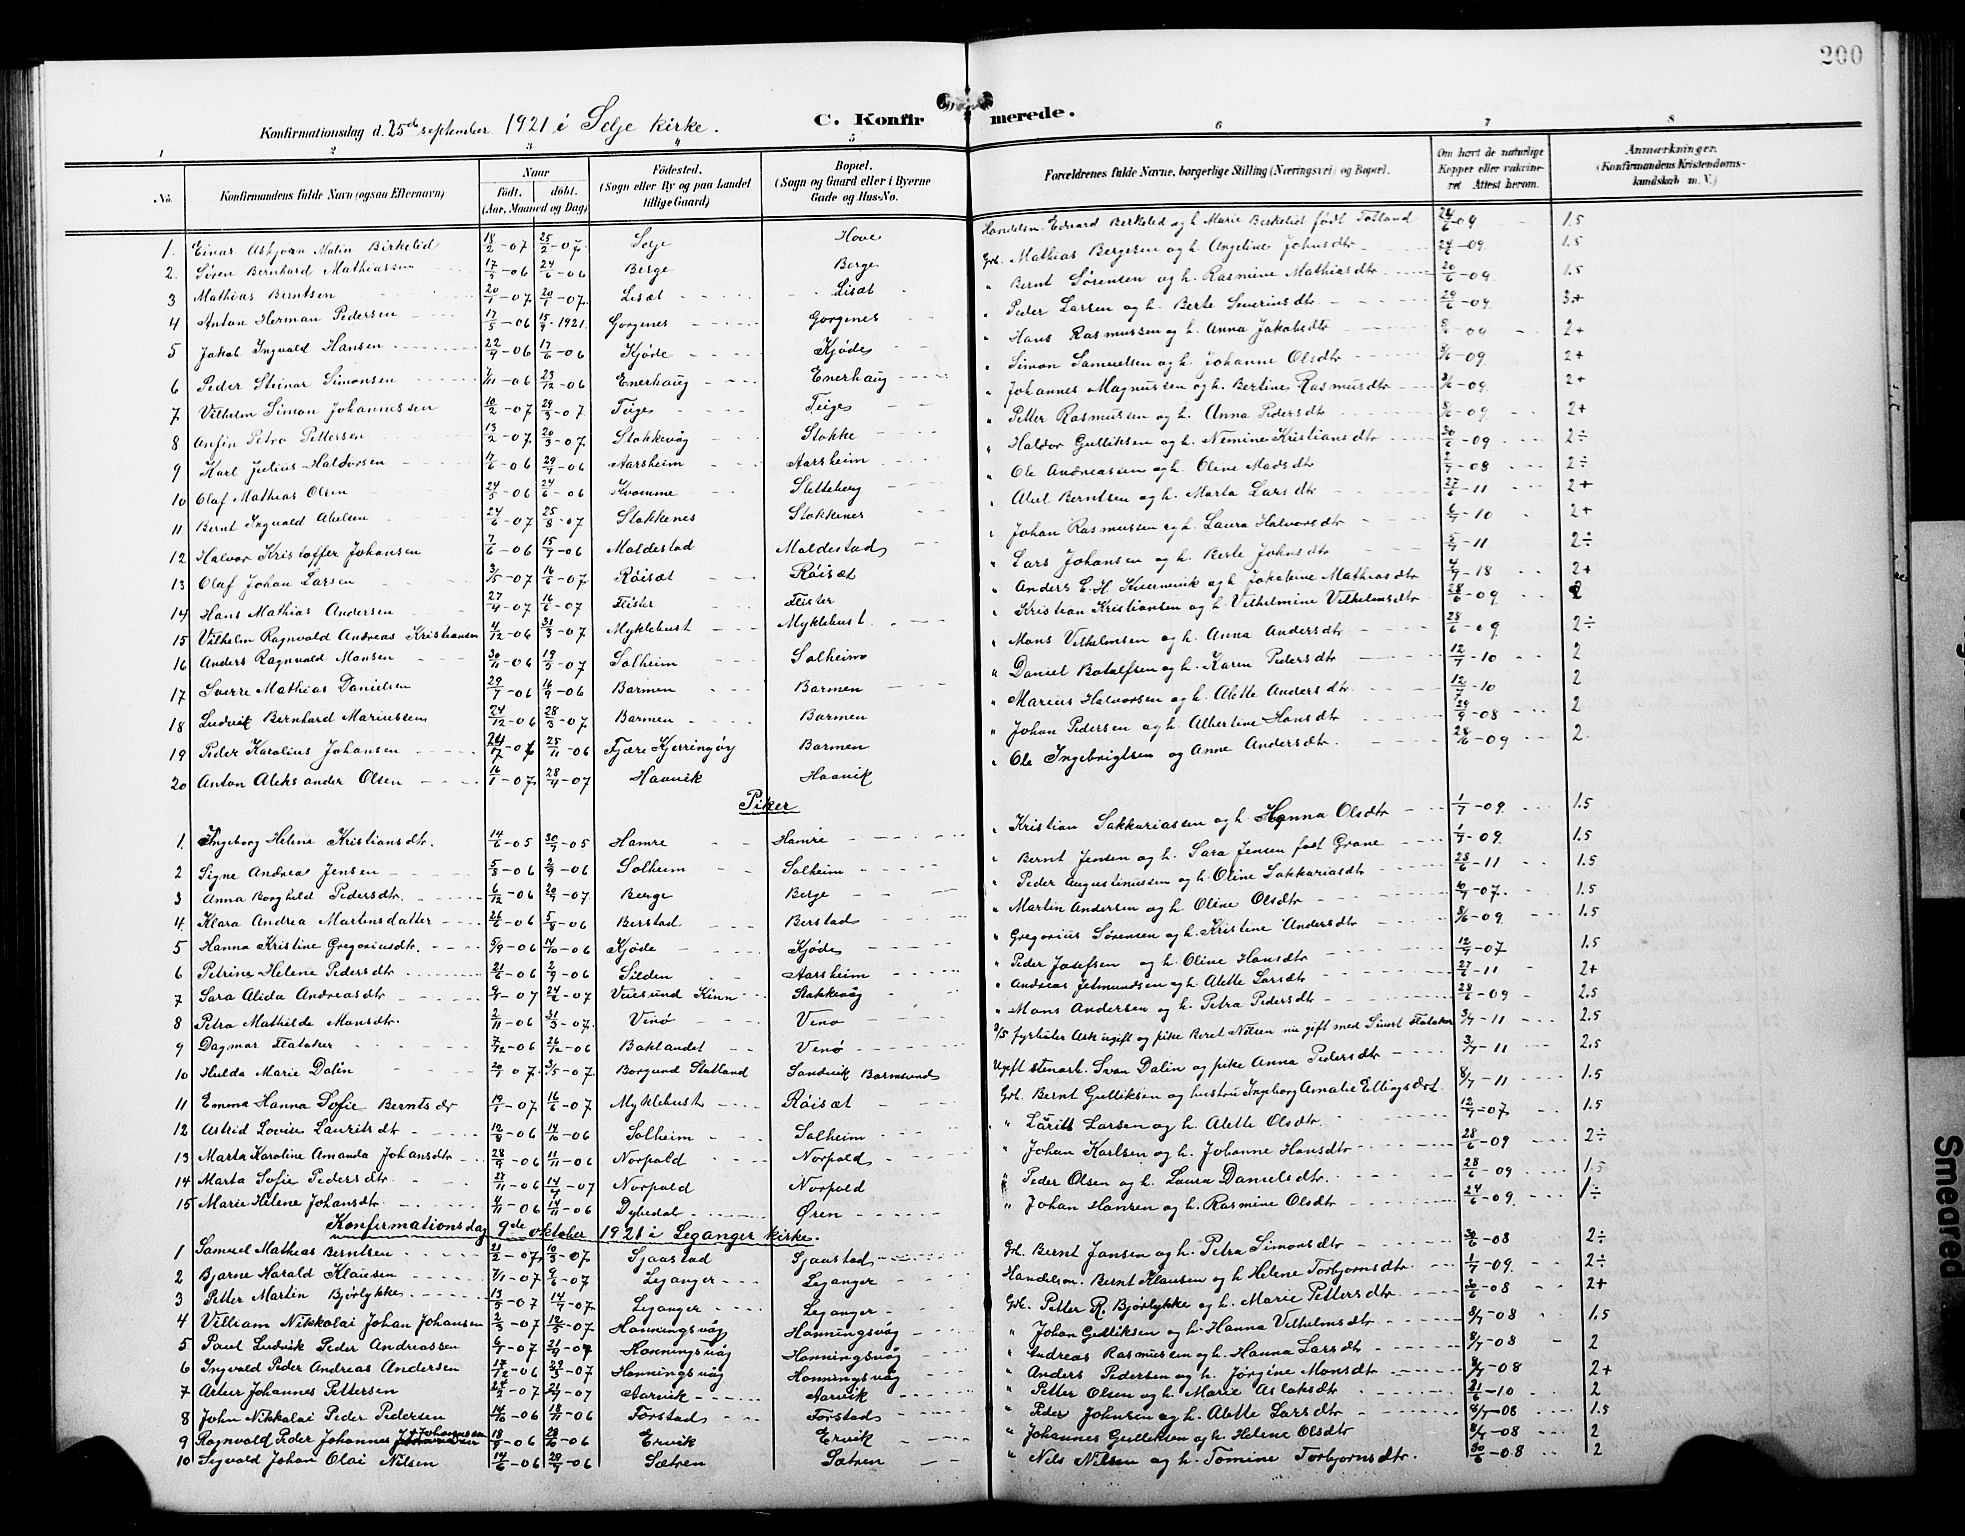 200
Konfirmationsdag d. 25de september 1921 i Selje kirke. C. Konfirmerede.
1 2 3 4 5 6 7 8
No. Konfirmandens fulde Navn (ogsaa Efternavn) Naar født. døbt. (Aar, Maaned og Dag) Fødested. (Sogn eller By og paa Landet tillige Gaard) Bopæl. (Sogn og Gaard eller i Byerne Gade og Hus-No. Forældrenes fulde Navne, borgerlige Stilling (Næringsvei) og Bopæl. Om havt de naturlige Kopper eller vakcineret Attest herom. Anmærkninger. (Konfirmandens Kristendomskundskab m. V.)
1. Einar Asbjørn Malin Birkelid 18/2-07 25/2-07. Selje Hove Handelsm. Edvard Berkelid og h. Marie Berkelid født Totland 24/6-09 1.5
2. Søren Bernhard Mathiassen 17/3-06 24/6-06 Berge Berge Grb. Mathias Bergesen og h. Angeline Johnsdtr 24/6-09. 1.5
3 Mathias Berntsen 20/1-07. 20/1-07. Lisæt Lisæt " Bernt Sørensen og h. Rasmine Mathiasdtr 20/6-09. 1.5
4 Anton Herman Pedersen 17/5-06 15/9-1921. Gorgenes Gorgenes " Peder Larsen og h. Berte Severinsdtr 29/6-09. 3+
5 Jakob Ingvald Hansen 22/9-06 17/6-06 Kjøde Kjøde " Hans Rasmussen og h. Anna Jakobsdtr -09 2+
6 Peder Steinar Simonsen 7/11-06 23/12-06 Enerhaug Enerhaug " Simon Samuelsen og h. Johanne Olsdtr 3/6-09. 2+
7 Vilhelm Simon Johannessen 10/2-07 29/3-07. Teiges Teiges " Johannes Magnussen og h. Bertine Rasmusdtr 3/6-09. 2+
8 Anfin Petro Pettersen 13/2-07 20/3-07. Stokkevåg Stokke " Petter Rasmussen og h. Anna Pedersdtr 8/6-09. 2+
9 Karl Julius Haldorsen 17/6-06 29/7-06 Aarsheim Aarsheim " Haldor Gulliksen og h. Nemine Kristiansdtr 30/6-09. 2÷
10 Olaf Mathias Olsen 24/5-06 24/6-06 Kvamme Sletteberg " Ole Andreassen og h. Oline Madsdtr 2/7-08 2÷
11 Bernt Ingvald Abelsen 24/6-07 25/8-07 Stokkenes Stokkenes " Abel Berntsen og h. Marta Larsdtr 27/6-11 2+
12 Halvor Kristoffer Johansen 7/6-06 15/7-06 Maldestad Maldestad " Johan Rasmussen og h. Laura Halvorsdtr 6/7-10 2+
13 Olaf Johan Larsen 3/5-07 16/6-07 Røisæt Røisæt " Lars Johansen og h. Berte Johnsdtr 5/7-11 2÷
14 Hans Mathias Andersen 27/4-07 16/6-07 Flister Flister " Anders E. H. og h. Jakobine Mathiasdtr 4/9-18 2+
15 Vilhelm Ragnvald Andreas Kristiansen 4/12-06 31/3-07 Myklebust Myklebust. " Kristian Kristiansen og h. Vilhelmine Vilhelmsdtr 28/6-09 2
16 Anders Ragnvald Monsen 30/11-06 19/5-07 Solheim Solheim " Mons Vilhelmsen og h. Anna Andersdtr 28/6-09. 2÷
17 Sverre Mathias Danielsen 29/7-06 16/9-06 Barmen Barmen " Daniel Botolfsen og h. Karen Pedersdtr 12/7-10 2
18 Ludvik Bernhard Mariussen 24/12-06 28/3-07. Barmen Barmen " Marius Halvorsen og h. Alette Andersdtr 12/7-10 2
19 Peder Karolius Johansen 25/11-06 Fjære Kjerringøy Barmen " Johan Pedersen og h. Albertine Hansdtr 29/9-08 2
20 Anton Aleksander Olsen 16/1-07. 28/4-07 Haavik Haavik " Ole Ingebrigtsen og Anne Andersdtr. 28/6-09. 2.
Piker
1. Ingeborg Helene Kristiansdtr. 14/6-05 30/7-05 Hamre Hamre " Kristian Sakkariassen og h. Hanna Olsdtr 1/7-09. 1.5
2 Signe Andrea Jensen 5/8-06 2/9-06 Solheim Solheim " Bernt Jensen og h. Sara Jensen født Grane 1/7-09. 1.5
3 Anna Borghild Pedersdtr 6/12-06 20/7-07. Berge Berge " Peder Augustinussen og h. Oline Sakkariasdtr 28/6-11 1.5
4. Klara Andrea Martinsdatter 26/6-06 5/8-06 Berstad Berstad " Martin Andersen og h. Oline Olsdtr 10/7-07. 1.5
5 Hanna Kristine Gregoriusdtr. 5/9-06 14/10-06 Kjøde Kjøde " Gregorius Sørensen og h. Kristine Andersdtr 8/6-09 1.5
6 Petrine Helene Pedersdtr 21/6-06 2/9-06 Silden Aarsheim " Peder Josefsen og h. Oline Hansdtr 12/9-07 1.5
7 Sara Alida Andreasdtr -07 24/2-07 Veiesund Kinn Stokkevåg " Andreas Jetmundsen og h. Alette Larsdtr 27/6-11 2+
8 Petra Mathilde Monsdtr. 2/11-06 31/3-07. Venø Venø " Mons Andersen og h. Petra Pedersdtr 28/6-09 2.5
9 Dagmar Flataker 7/12-06 26/12-06 Baklandet Venø fyrbøter Ask ugift og pike Beret Nilsen nu gift med Sivert Flataker 3/7-11 2.5
10 Hulda Marie Dalin 20/1 07. 3/5-07. Borgund Statland Sandvik Barmsund Ugift stenarb. Svan Dalin og pike Anna Pedersdtr 3/7-11 2.5
11 Emma Hanna Sofie Berntsdtr 19/1-07 16/6-07 Myklebust Røisæt Grb. Bernt Gulliksen og hustru Ingeborg Amalie Ellingsdtr. 8/7-11 1.5
12 Astrid Lovise Lauritsdtr 12/8-06 14/10-06 Solheim Solheim " Larits Larsen og h. Alette Olsdtr. 12/7-07 1.5
13 Marta Karoline Amanda Johansdtr 28/9-06 11/11-06 Norpold Norpold " Johan Karlsen og h. Johanne Hansdtr 28/6-09 2÷
14 Marta Sofie Pedersdtr. 27/11-06 14/4-07 Norpold Norpold " Peder Olsen og h. Laura Danielsdtr. 28/6-09. 1.5
15 Marie Helene Johansdtr 4/11-06 14/11-06 Dybedal Øren " Johan Hansen og h. Rasmine Olsdtr 24/6-09. 1÷
Konfirmationsdag 9de oktober 1921 i Leganger kirke.
1 Samuel Mathias Berntsen 21/2-07 10/3-07 Sjaastad Sjaastad Grb. Bernt Jansen og h. Petra Simonsdtr 30/6-08 2÷
2 Bjarne Harald Klausen 7/1-07 9/6-07 Leganger Leganger Handelsm. Bernt Klausen og h. Helene Torbjornsdtr 1/7-09. 2÷
3 Petter Martin Bjørlykke 13/5-07 14/7-07. Leganger Leganger Grb. Petter R. Bjørlykke og h. Marie Pettersdtr 30/6-08 2+
4 Villiam Nikkolai Johan Johansen 2/3-07 12/5-07 Honningsvåg Honningsvåg " Johan Gulliksen og h. Hanna Vilhelmsdtr 8/7-08 1.5
5 Paul Ludvik Peder Andreassen 6/1-07 21/4-07 Honningsvåg Honningsvåg " Andreas Rasmussen og h. Hanna Larsdtr 8/7-08 2
6 Ingvald Peder Andreas Andersen 17/12-06 29/3-07 Honningsvåg Honningsvåg " Anders Pedersen og h. Jørgine Monsdtr 8/7-08 2+
7 Artur Johannes Pettersen -07 -07 Aarvik Aarvik " Petter Olsen og h. Marie Aslaksdtr 21/6-10 2
8 John Nikkolai Peder Pedersen 14/10-06 18/11-06 Forstad Forstad " Peder Johnsen og h. Alette Larsdtr 8/7-08 1.5
9 Ragnvald Peder Johannes Johannessen 18/9-06 28/10-06 Ervik Ervik " Johannes Gulliksen og h. Helene Olsdtr 8/7-08 2
10 Sigvald Johan Olai Nilsen 14/6-06 29/7-06 Sætren Sætren " Nils Nilsen og h. Tomine Torbjornsdtr. 30/6-08 2
Smeared